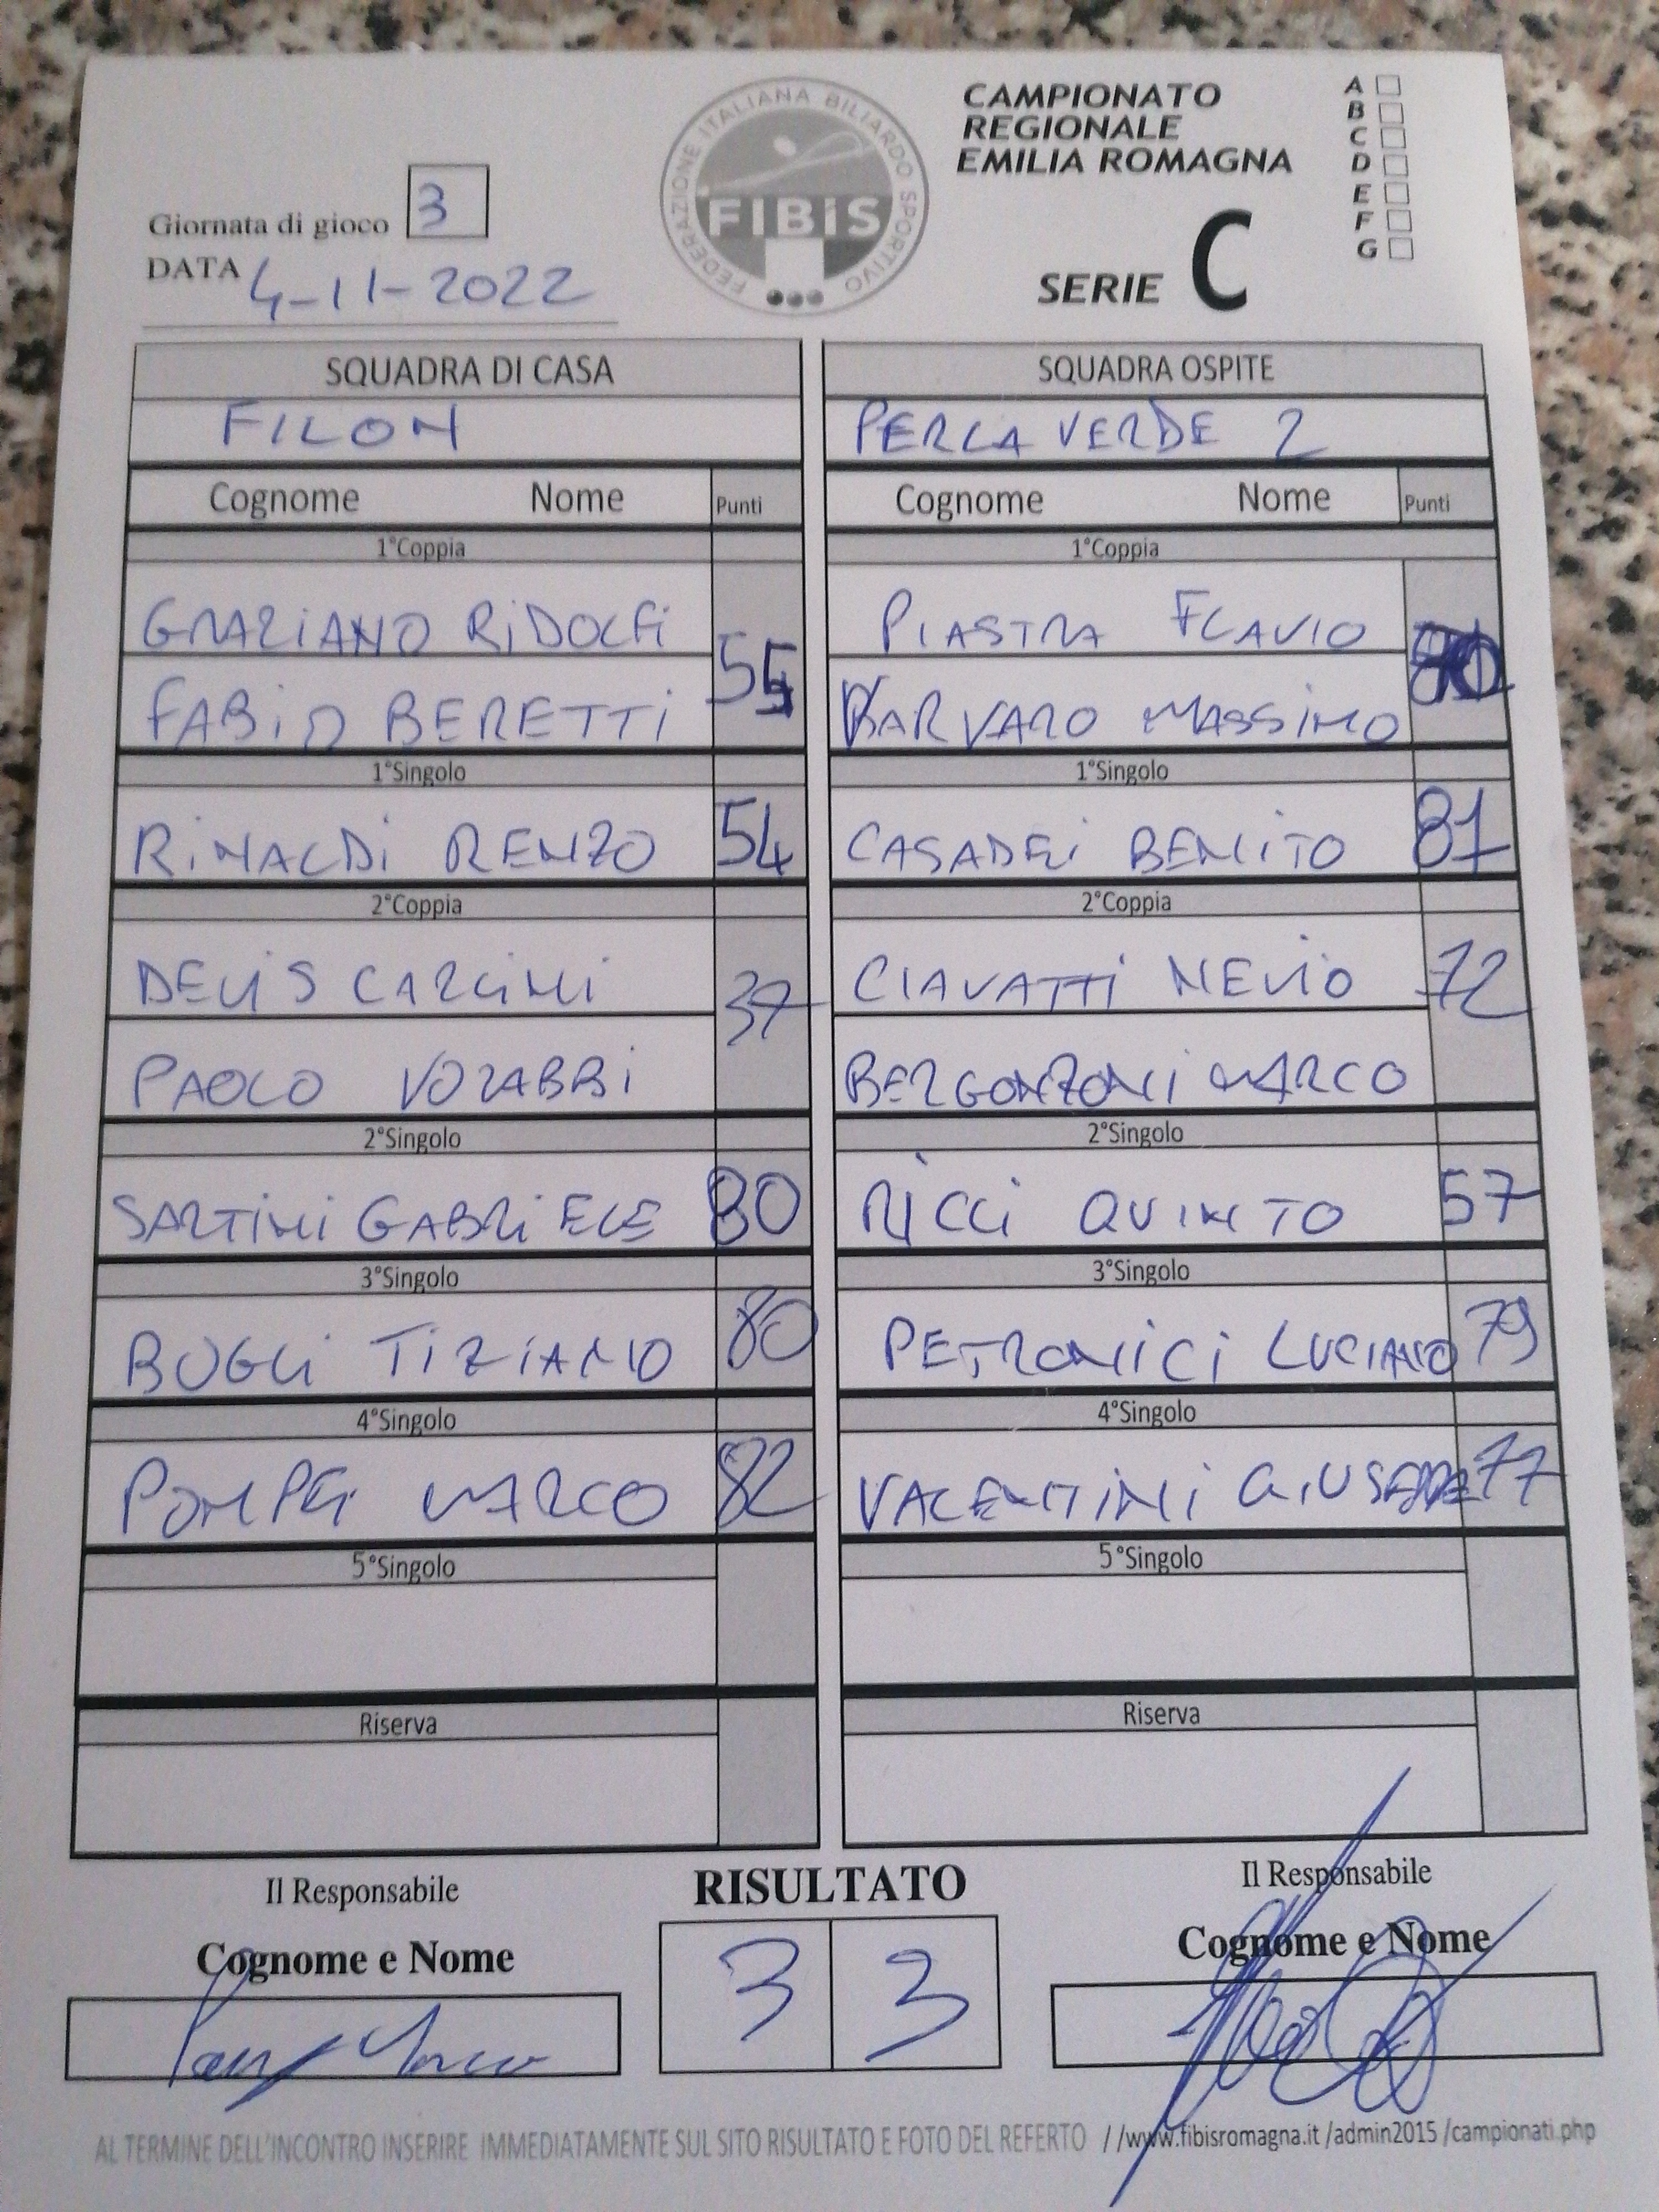 FEDERAZIONE ITALIANA BILIARDO SPORTIVO
FIBiS
CAMPIONATO
REGIONALE
EMILIA ROMAGNA
SERIE C
A
B
C
D
E
F
G
Giornata di gioco 3
DATA 4-11-2022
SQUADRA DI CASA
FILON
Cognome Nome Punti
1°Coppia
GRAZIANO RIDOLFI
55
FABIO BERETTI
1°Singolo
RINALDI RENZO 54
2°Coppia
DEVIS CARLINI
37
PAOLO VORABBI
2°Singolo
SARTINI GABRIELE 80
3°Singolo
BUGLI TIZIANO 80
4°Singolo
POMPEI MARCO 82
5°Singolo
Riserva
SQUADRA OSPITE
PERLA VERDE 2
Cognome Nome Punti
1°Coppia
PIASTRA FLAVIO
BARVARO MASSIMO
1°Singolo
CASADEI BENITO 81
2°Coppia
CIAVATTI NEVIO 72
BERGONZONI MARCO
2°Singolo
RICCI QUINTO 57
3°Singolo
PETRONICI LUCIANO 79
4°Singolo
VALENTINI GIUSEPPE 77
5°Singolo
Riserva
Il Responsabile
Cognome e Nome
RISULTATO
3 3
Il Responsabile
Cognome e Nome
AL TERMINE DELL'INCONTRO INSERIRE IMMEDIATAMENTE SUL SITO RISULTATO E FOTO DEL REFERTO //www.fibisromagna.it/admin2015/campionati.php